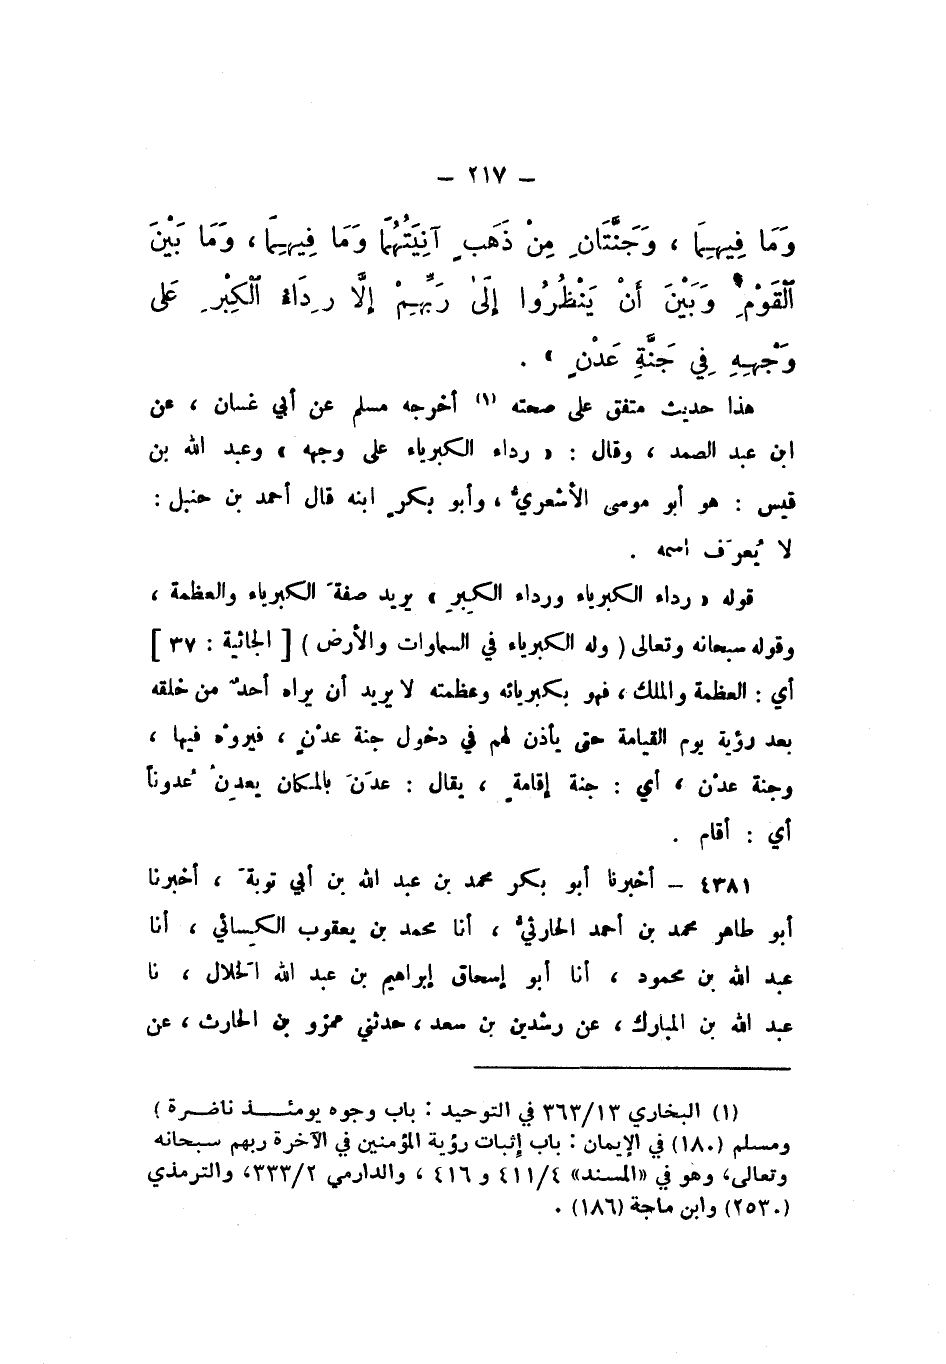 – ٢١٧ –
وَمَا فِيهِمَا ، وَجَنَّتَانِ مِنْ ذَهَبٍ آنِيَتُهُمَا وَمَا فِيهِمَا ، وَمَا بَيْنَ
ٱلْقَوْمِ وَبَيْنَ أَنْ يَنْظُرُوا إِلَىٰ رَبِّهِمْ إِلَّا رِدَاءُ ٱلْكِبْرِ عَلَى
وَجْهِهِ فِي جَنَّةِ عَدْنٍ » .
هذا حديث متفق على صحته (١) أخرجه مسلم عن أبي غسان ، عن
ابن عبد الصمد ، وقال : « رداء الكبرياء على وجهه » وعبد الله بن
قيس : هو أبو موسى الأشعريُّ ، وأبو بكرٍ ابنه قال أحمد بن حنبل :
لا يُعرَف اسمه .
قوله « رداء الكبرياء ورداء الكِبرِ » يريد صفةَ الكبرياء والعظمة ،
وقوله سبحانه وتعالى ( وله الكبرياء في السماوات والأرض ) [ الجاثية : ٣٧ ]
أي : العظمة والملك ، فهو بكبريائه وعظمته لا يريد أن يراه أحدٌ من خلقه
بعد رؤية يوم القيامة حتى يأذن لهم في دخول جنة عدْنٍ ، فيروْه فيها ،
وجنة عدْن ، أي : جنة إقامةٍ ، يقال : عدَنَ بالمكان يعدِنُ عُدوناً
أي : أقام .
٤٣٨١ – أخبرنا أبو بكر محمد بن عبد الله بن أبي توبةَ ، أخبرنا
أبو طاهر محمد بن أحمد الحارثيُّ ، أنا محمد بن يعقوب الكسائي ، أنا
عبد الله بن محمود ، أنا أبو إسحاق إبراهيم بن عبد الله الَخلال ، نا
عبد الله بن المبارك ، عن رشدين بن سعد ، حدثني عمرو بن الحارث ، عن
(١) البخاري ٣٦٣/١٣ في التوحيد : باب وجوه يومئـــذ ناضـرة )
ومسلم (١٨٠) في الإيمان : باب إثبات رؤية المؤمنين في الآخرة ربهم سبحانه
وتعالى، وهو في «المسند» ٤١١/٤ و ٤١٦ ، والدارمي ٣٣٣/٢، والترمذي
(٢٥٣٠) وابن ماجة (١٨٦) .